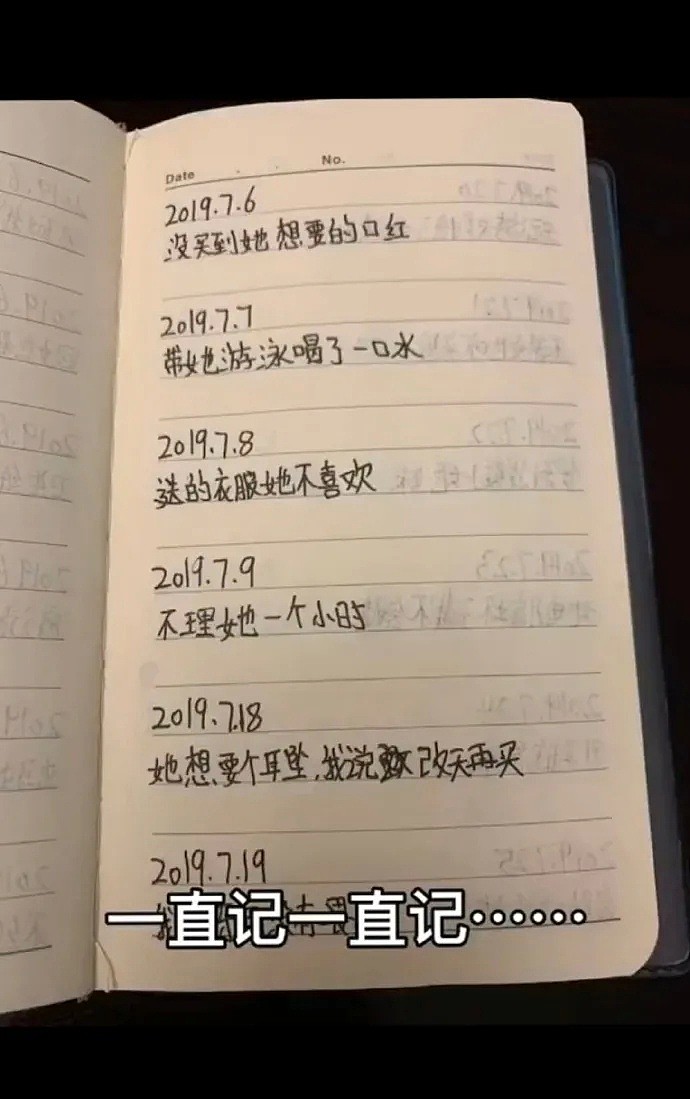 Date
No.
2019.7.6
没买到她想要的口红
2019.7.7
带她游泳喝了一口水
2019.7.8
送的衣服她不喜欢
2019.7.9
不理她一个小时
2019.7.18
她想要个耳坠,我说改天再买
2019.7.19
一直记一直记……